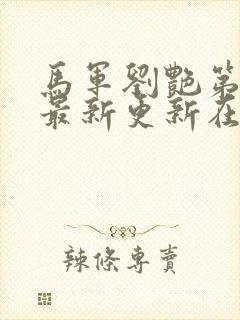 馬軍劉艷第
最新更新在
辣條專賣